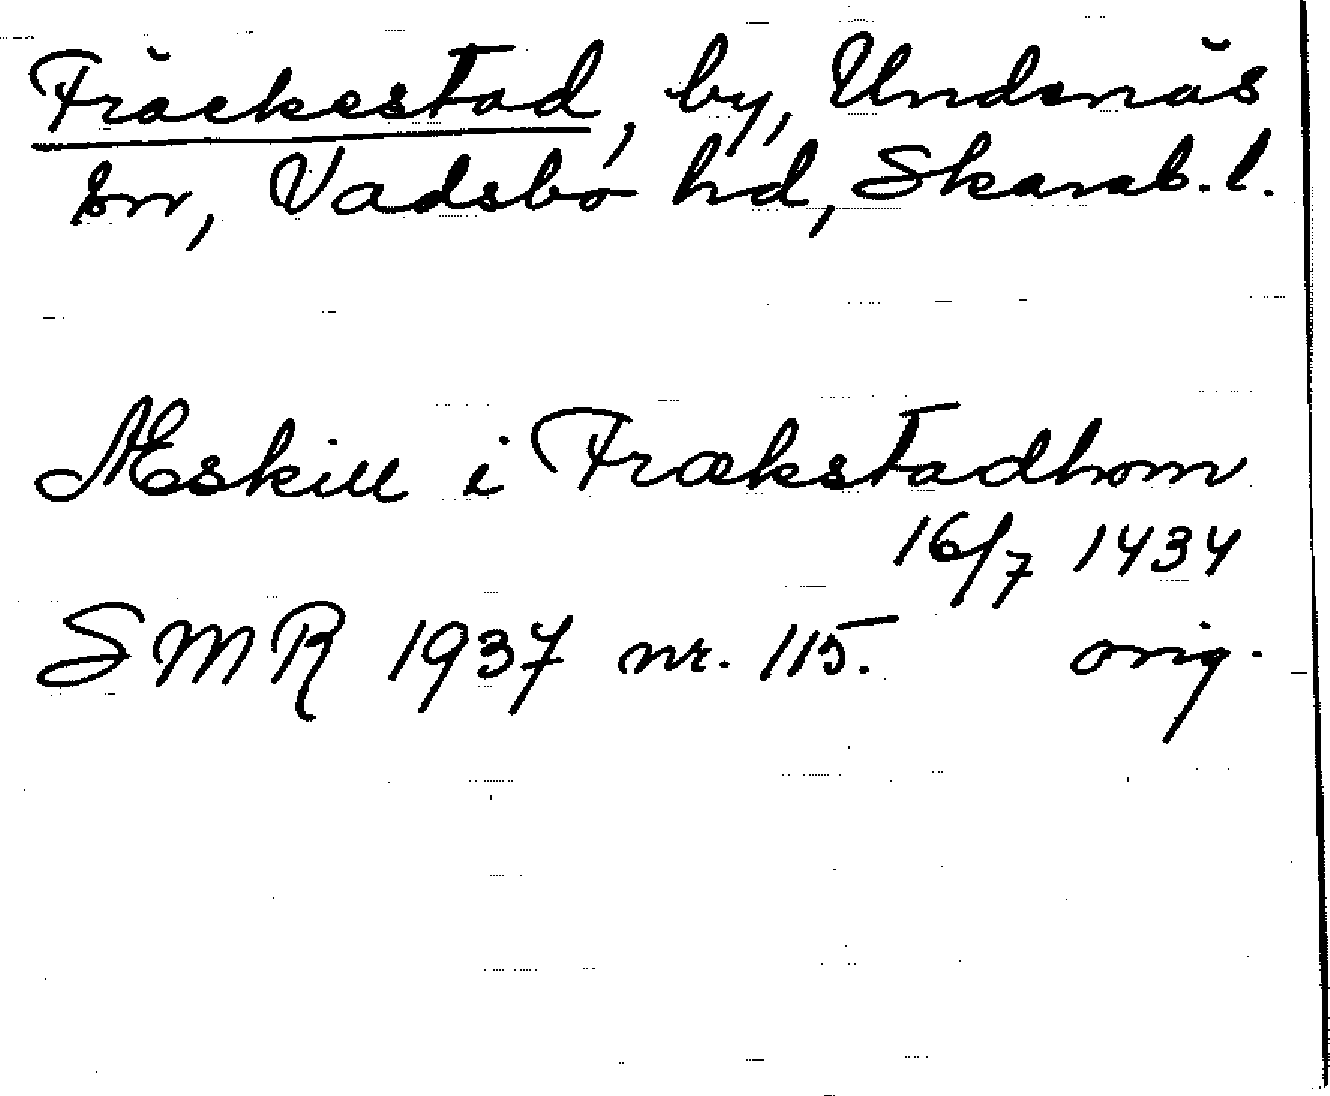 Fräckestad, by, Undenäs
sn, Vadsbo hd, Skarab. l.
Æskill i Frækstadhom
16/7 1434
SMR 1937 nr. 115. orig.